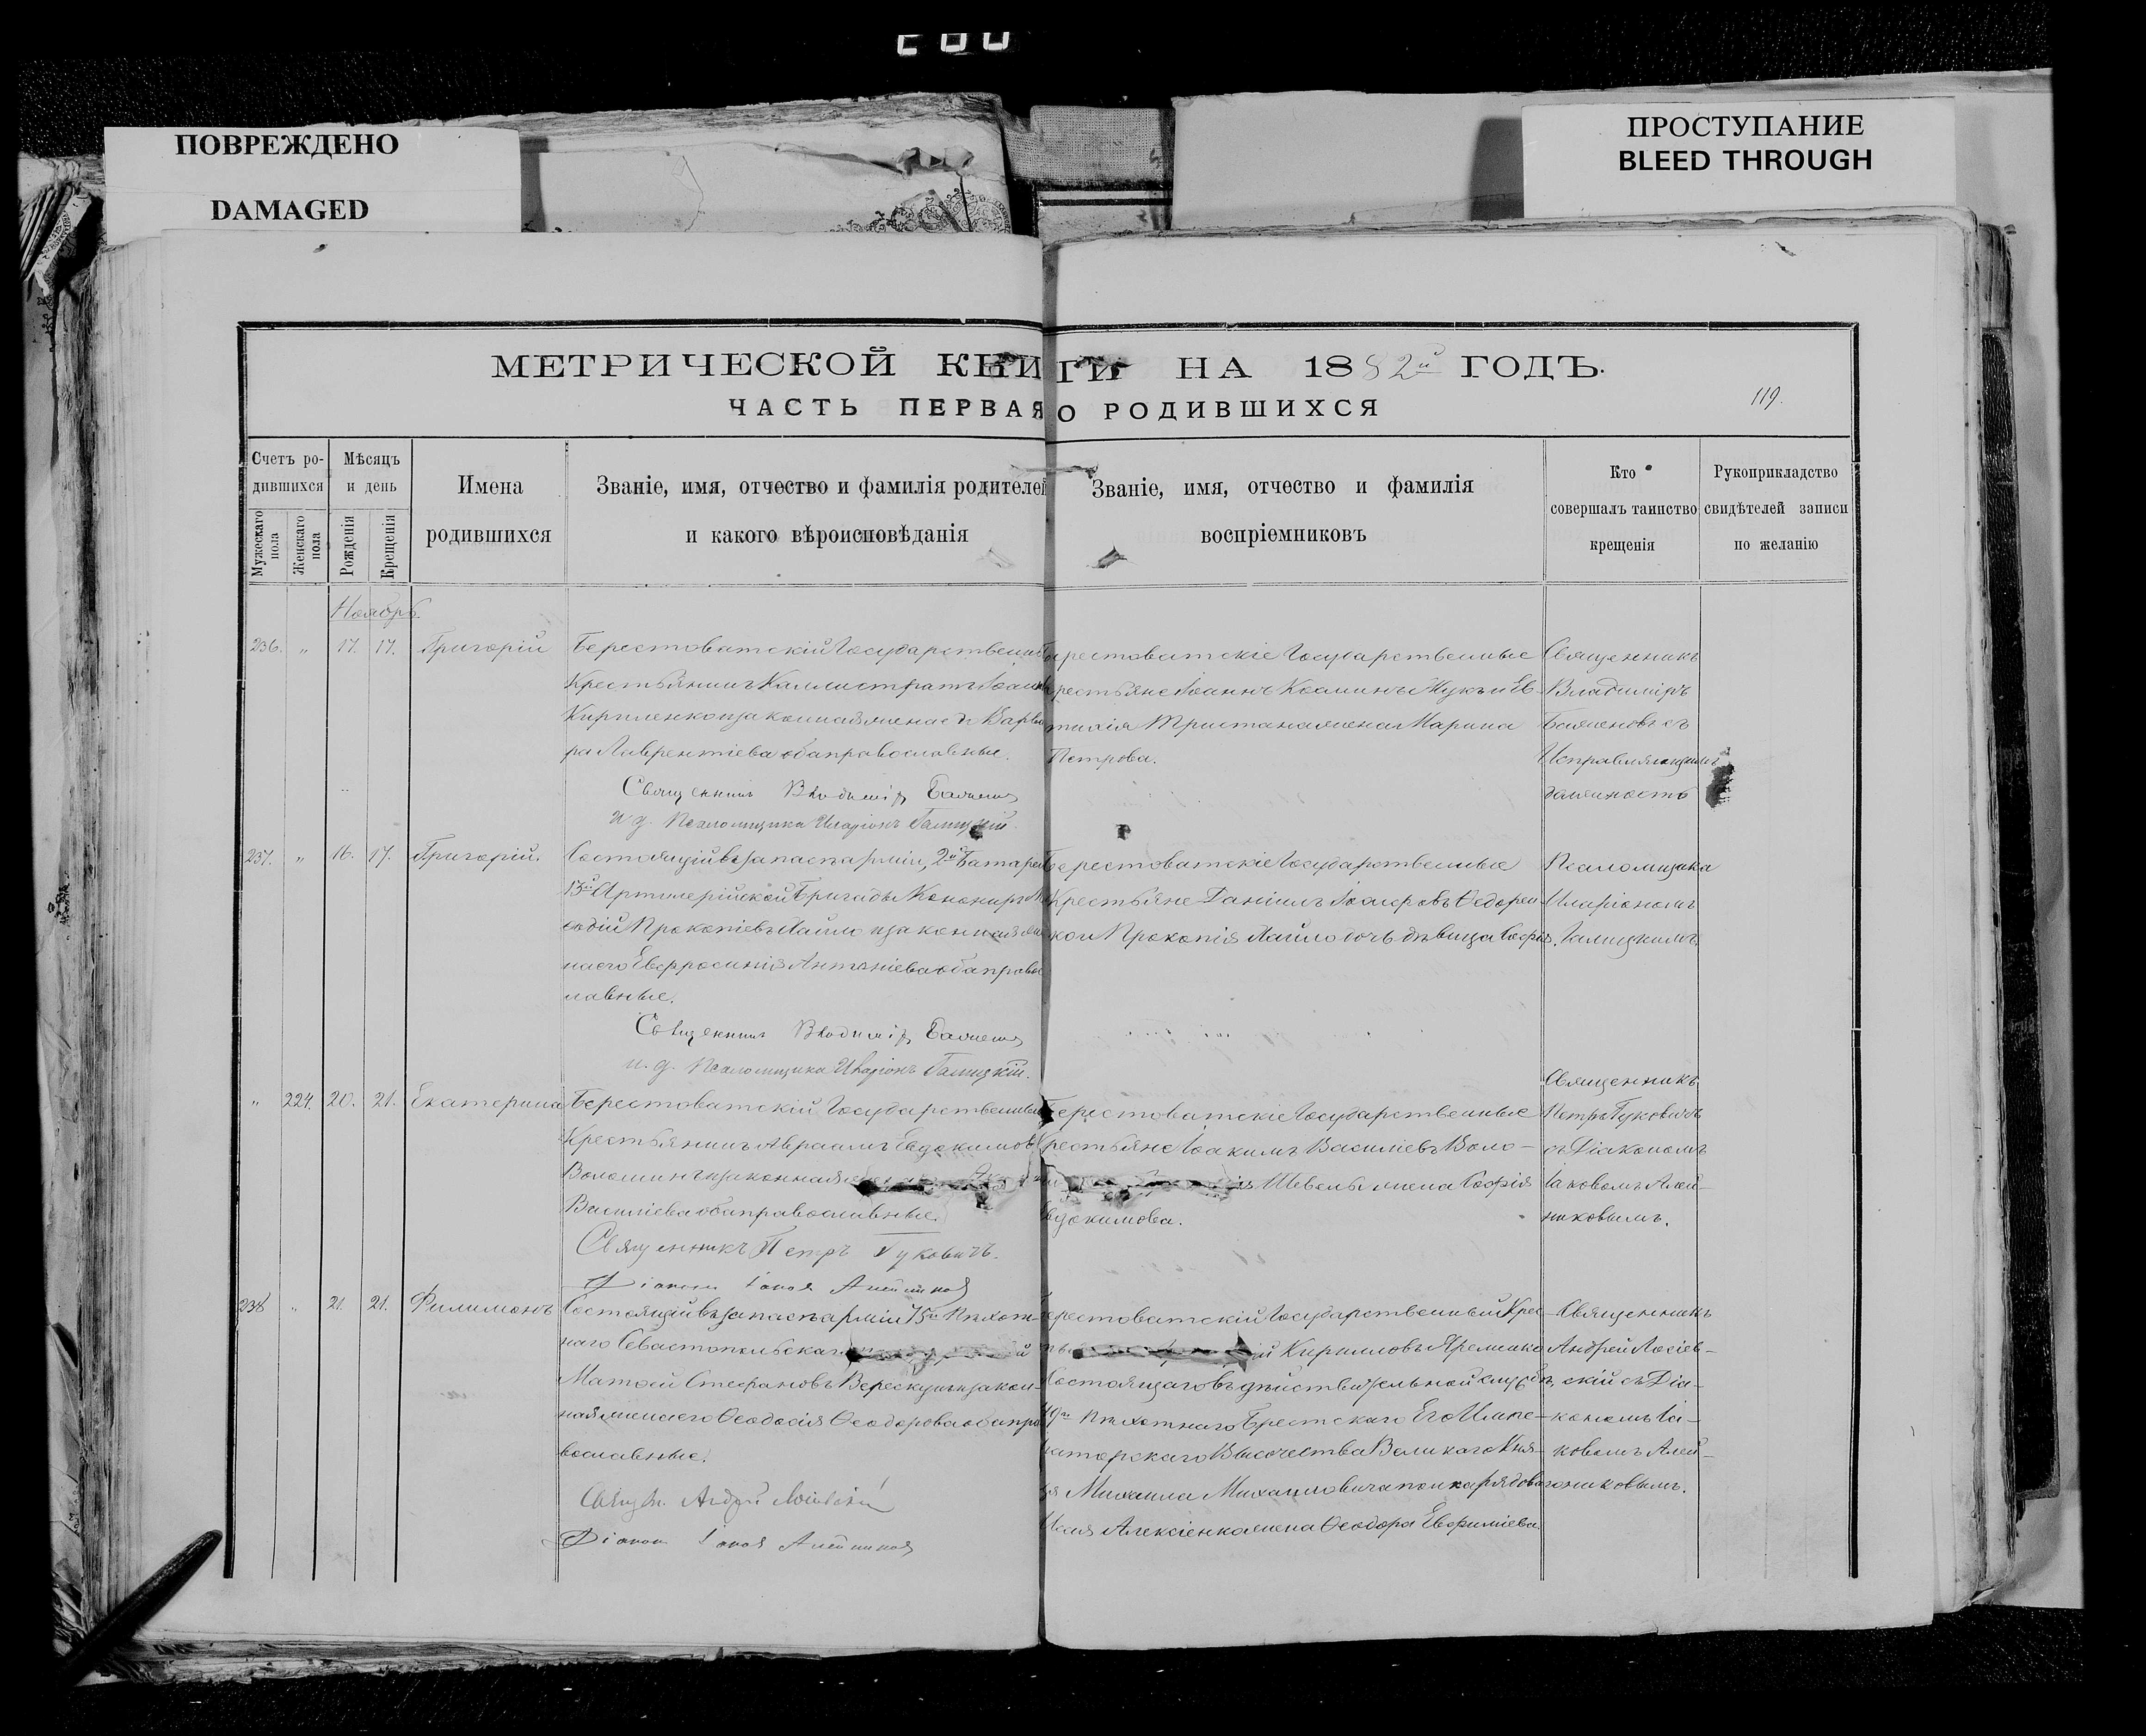 ПОВРЕЖДЕНО
DAMAGED
ПРОСТУПАНИЕ
BLEED THROUGH
МЕТРИЧЕСКОЙ КНИГИ НА 1882й ГОДЪ.
ЧАСТЬ ПЕРВАЯ О РОДИВШИХСЯ
119.
Счетъ ро-
дившихся
Мужескаго пола
Женскаго пола
Мѣсяцъ
и день
Рожденія
Крещенія
Имена
родившихся
Званіе, имя, отчество и фамилія родителей
и какого вѣроисповѣданія
Званіе, имя, отчество и фамилія
воспріемниковъ
Кто
совершалъ таинство
крещенія
Рукоприкладство
свидѣтелей записи
по желанію
Ноябрь
236. " 17. 17. Григорій
Берестоватскій Государственный
Крестьянинъ Каллистратъ
Кириленко и законная жена его Варва
ра Лаврентіева оба православные.
Священникъ
и. д. Псаломщика Иларіонъ Галицкій.
Берестоватскіе Государственные
Крестьяне Іоаннъ Косминъ Жукъ и Ев-
жена Марина
Петрова.
Священникъ
Владиміръ
съ
Исправляющимъ
должность
237. " 16. 17. Григорій.
Состоящій въ запасѣ арміи, 2й Батареи
13й Артилерійской Бригады
Прокопіевъ и законная же
на его Антоніева оба право
славные.
Священникъ
и. д. Псаломщика Иларіонъ Галицкій.
Берестоватскіе Государственные
Крестьяне Даніилъ Ѳедорен
ко и Прокопія дочь дѣвица Софія.
Псаломщика
Иларіономъ
Галицкимъ.
" 224. 20. 21. Екатерина
Берестоватскій Государственный
Крестьянинъ Авраамъ Евдокимовъ
Волошинъ и законная
Василіева оба православные.
Священникъ Петръ Гуковичъ.
Діаконъ Іаковъ Алейниковъ
Берестоватскіе Государственные
Крестьяне Іоакимъ Василіевъ Воло-
жена Софія
Евдокимова.
Священникъ
Петръ Гуковичъ
съ Діакономъ
Іаковомъ Алей-
никовымъ.
238 " 21. 21. Филимонъ
Состоящій въ запасѣ арміи 75го Пѣхот-
наго Севастопольскаго
Матѳей Стефановъ и закон-
ная жена его Ѳеодосія Ѳеодорова оба пра
вославные.
Андрей
Діаконъ Іаковъ Алейниковъ
Берестоватскій Государственный Крес-
Кирилловъ Яременко
Состоящаго въ дѣйствительной службѣ,
49го Пѣхотнаго Брестскаго Его Импе-
раторскаго Высочества Великаго Кня-
зя Михаила Михаиловича полка рядоваго
Алексіенка жена Ѳеодора Евфиміева.
Священникъ
Андрей Лосіев-
скій съ Діа-
кономъ Іа-
ковомъ Алей-
никовымъ.